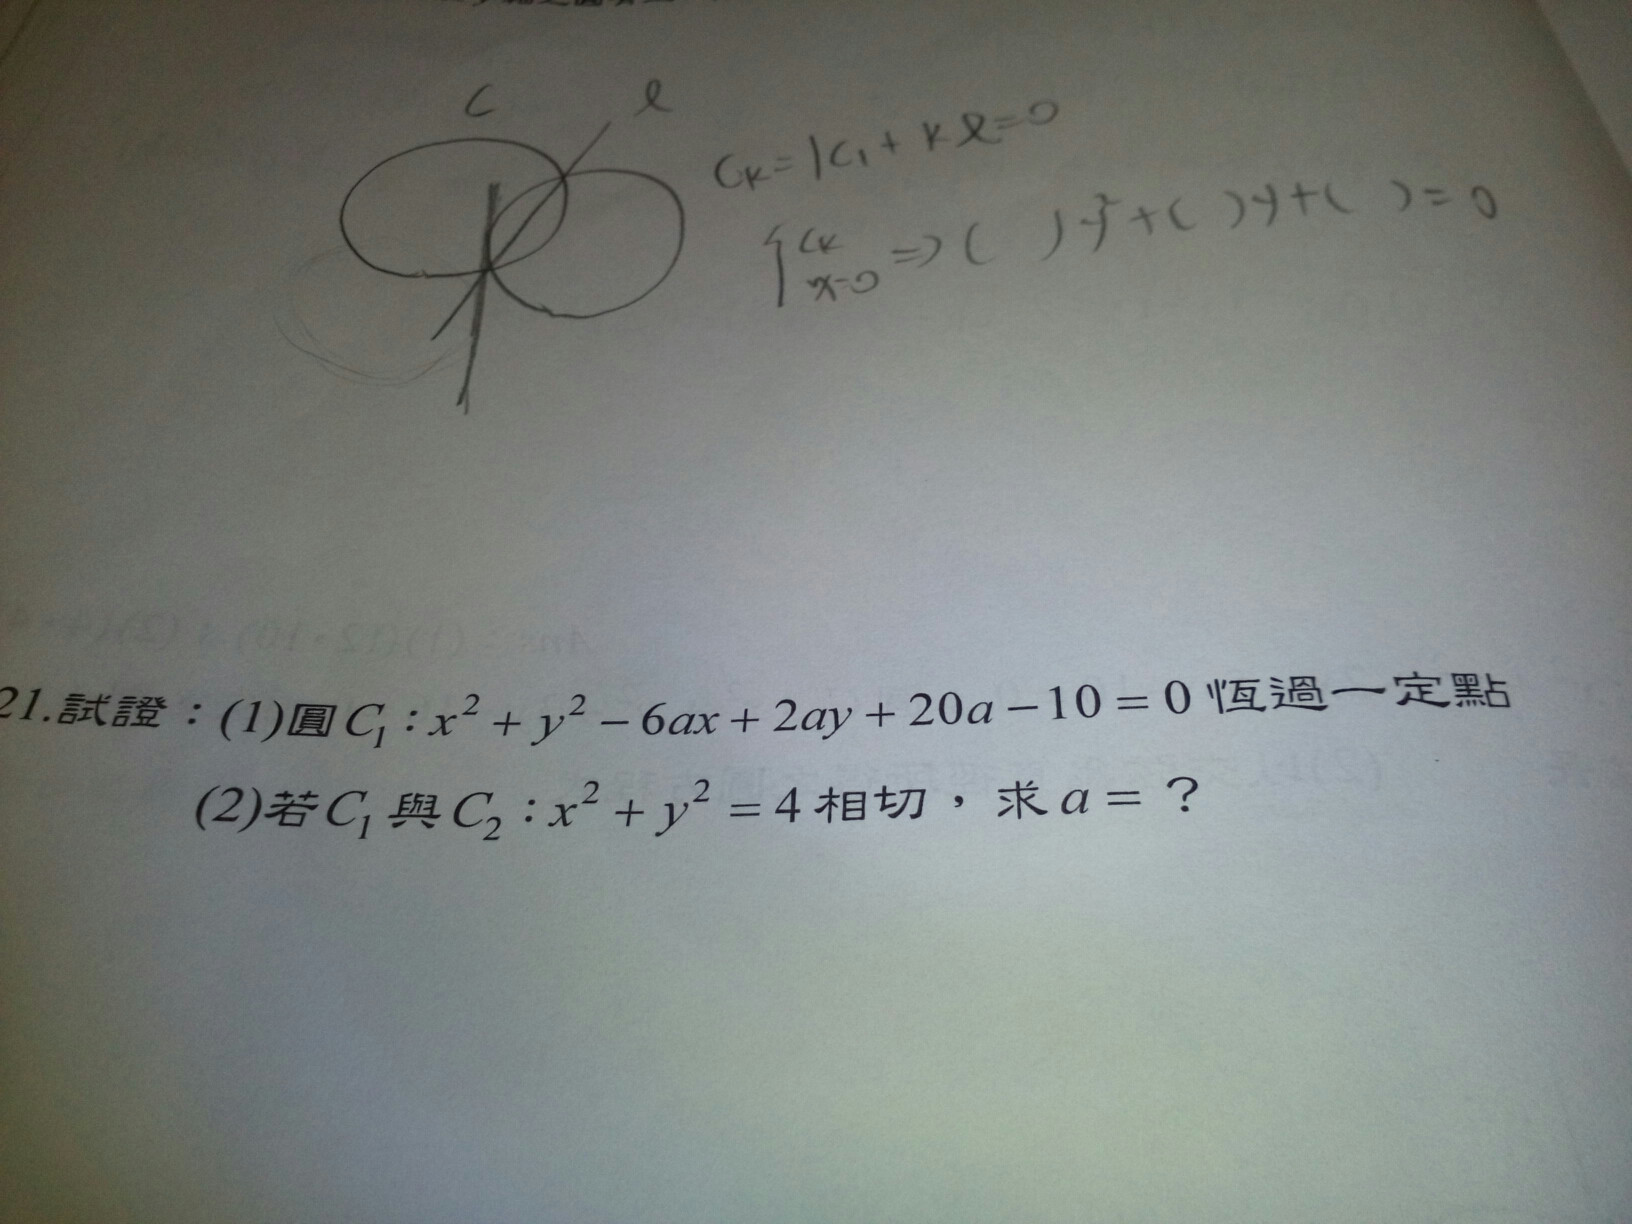 C l
Cₖ = 1C₁ + kl = 0
{Cₖ x=0 ⇒ ( )y²+( )y+( ) = 0
21.試證：(1)圓C₁：x² + y² − 6ax + 2ay + 20a − 10 = 0 恆過一定點
(2)若C₁與C₂：x² + y² = 4 相切，求a = ？